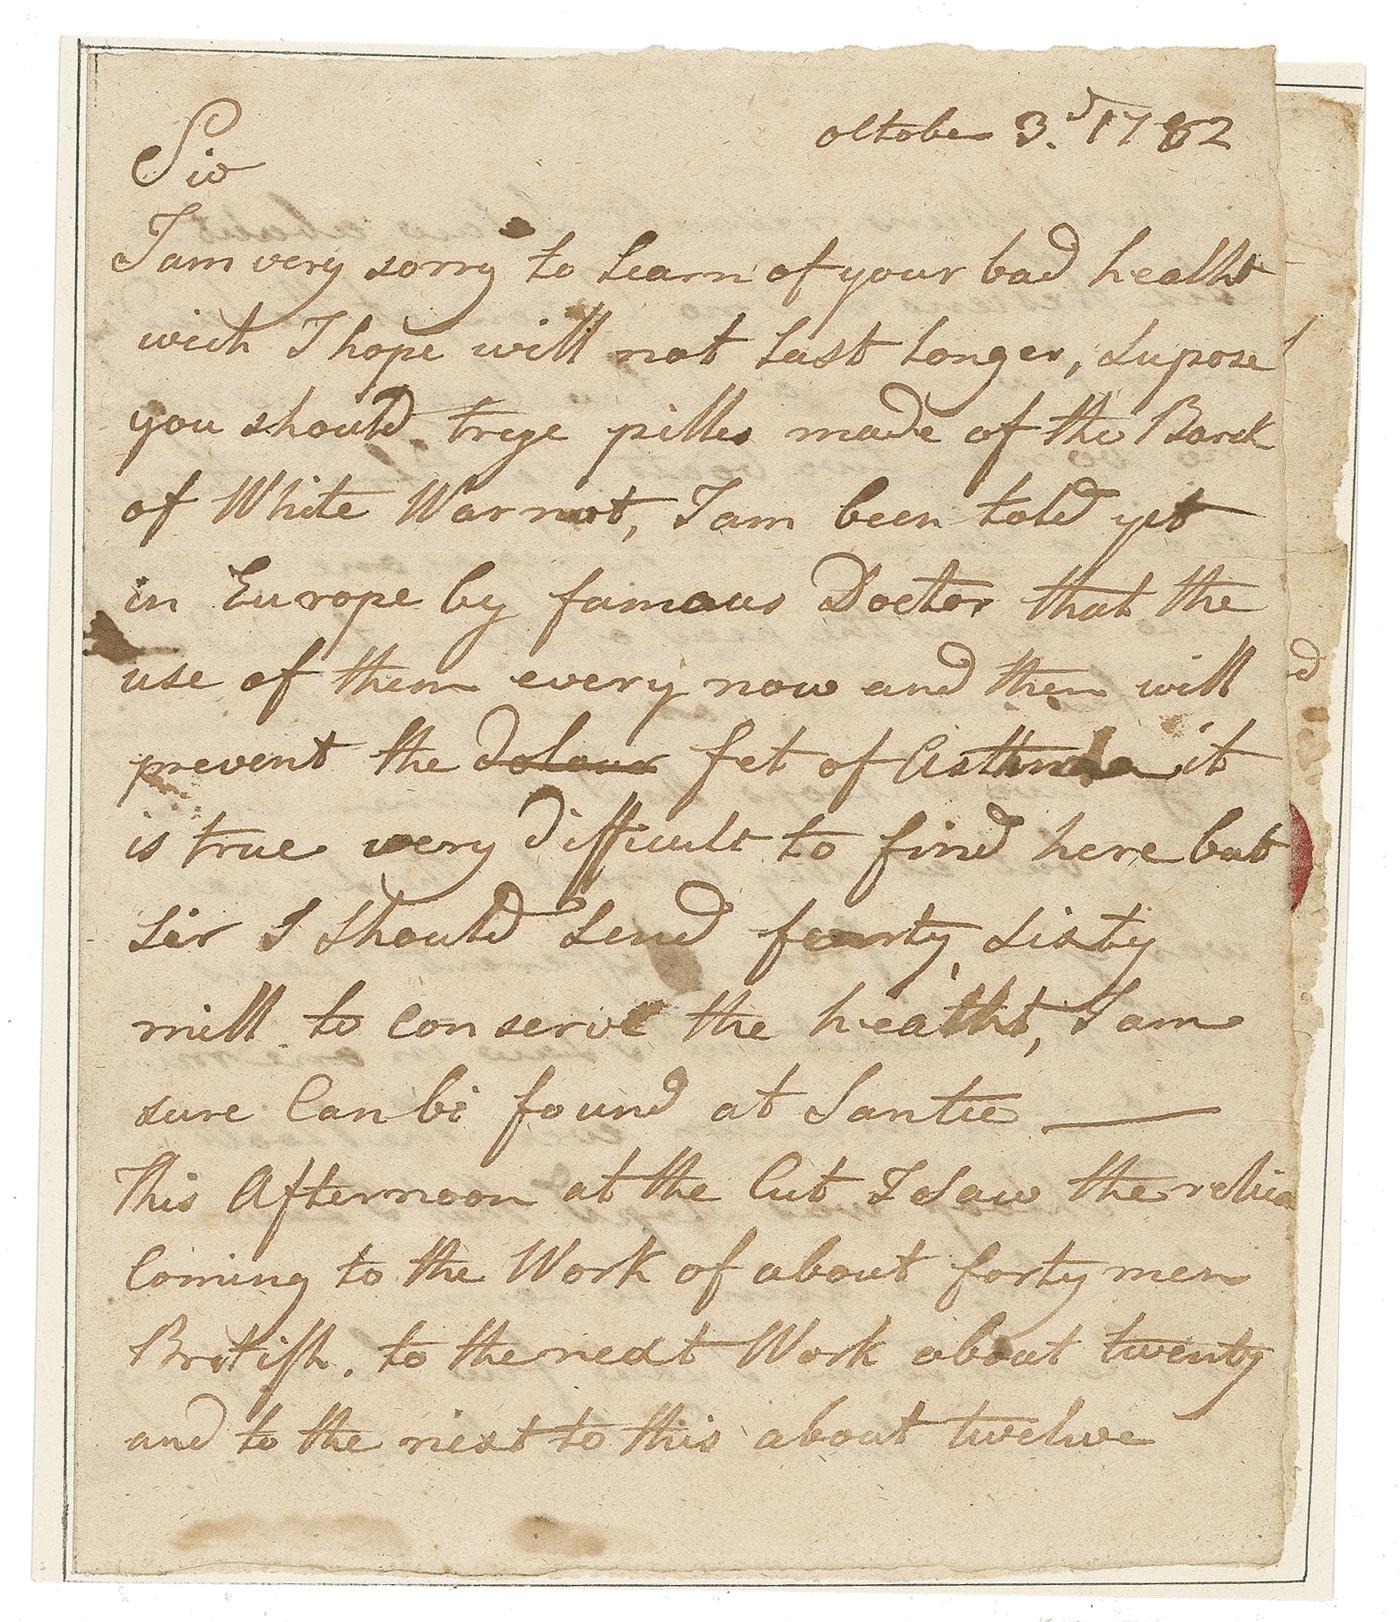 october 3.d 1782
Sir
I am very sorry to Learn of your bad healht
wich I hope will not Last Longer, Supose
you should treye pilles made of the Barck
of White Warnot, I am been told yet
in Europe by famous Doctor that the
use of them every now and then will
prevent the dolour fet of Asthma it
is true very difficult to find here but
Sir I should Send fourty, Sixty
mill to conserve the healht, I am
sure Can be found at Santee —
This Afternoon at the Cut I Saw the relica
Coming to the Work of about forty men
British. to the next Work about twenty
and to the next to this about twelve